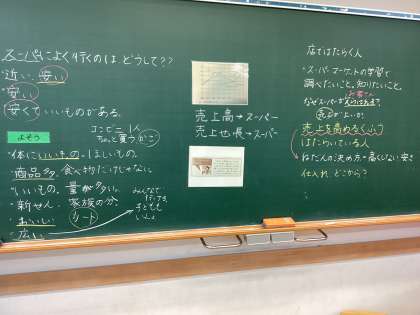 スーパーによく行くのは どうして??
・近い、安い
・安い
安くていいものがある。
よそう
コンビニ=1人
ちょっと買う かご
・体にいいもの・ほしいもの。
商品多. 食べ物だけじゃない。
・いいもの、量が多い。
・新せん. 家族の分.
・おいしい カート
・広い
みんなで
行っても
子どもも
いい
売上高→スーパー
売上 長→スーパー
店ではたらく人
・スーパーマーケットの学習で
調べたいこと。知りたいこと。
お客さん
なぜスーパー
売り上げを高めるくふう
はたらいている人
ねだんの決め方・高くしない 安く
仕入れ どこから?